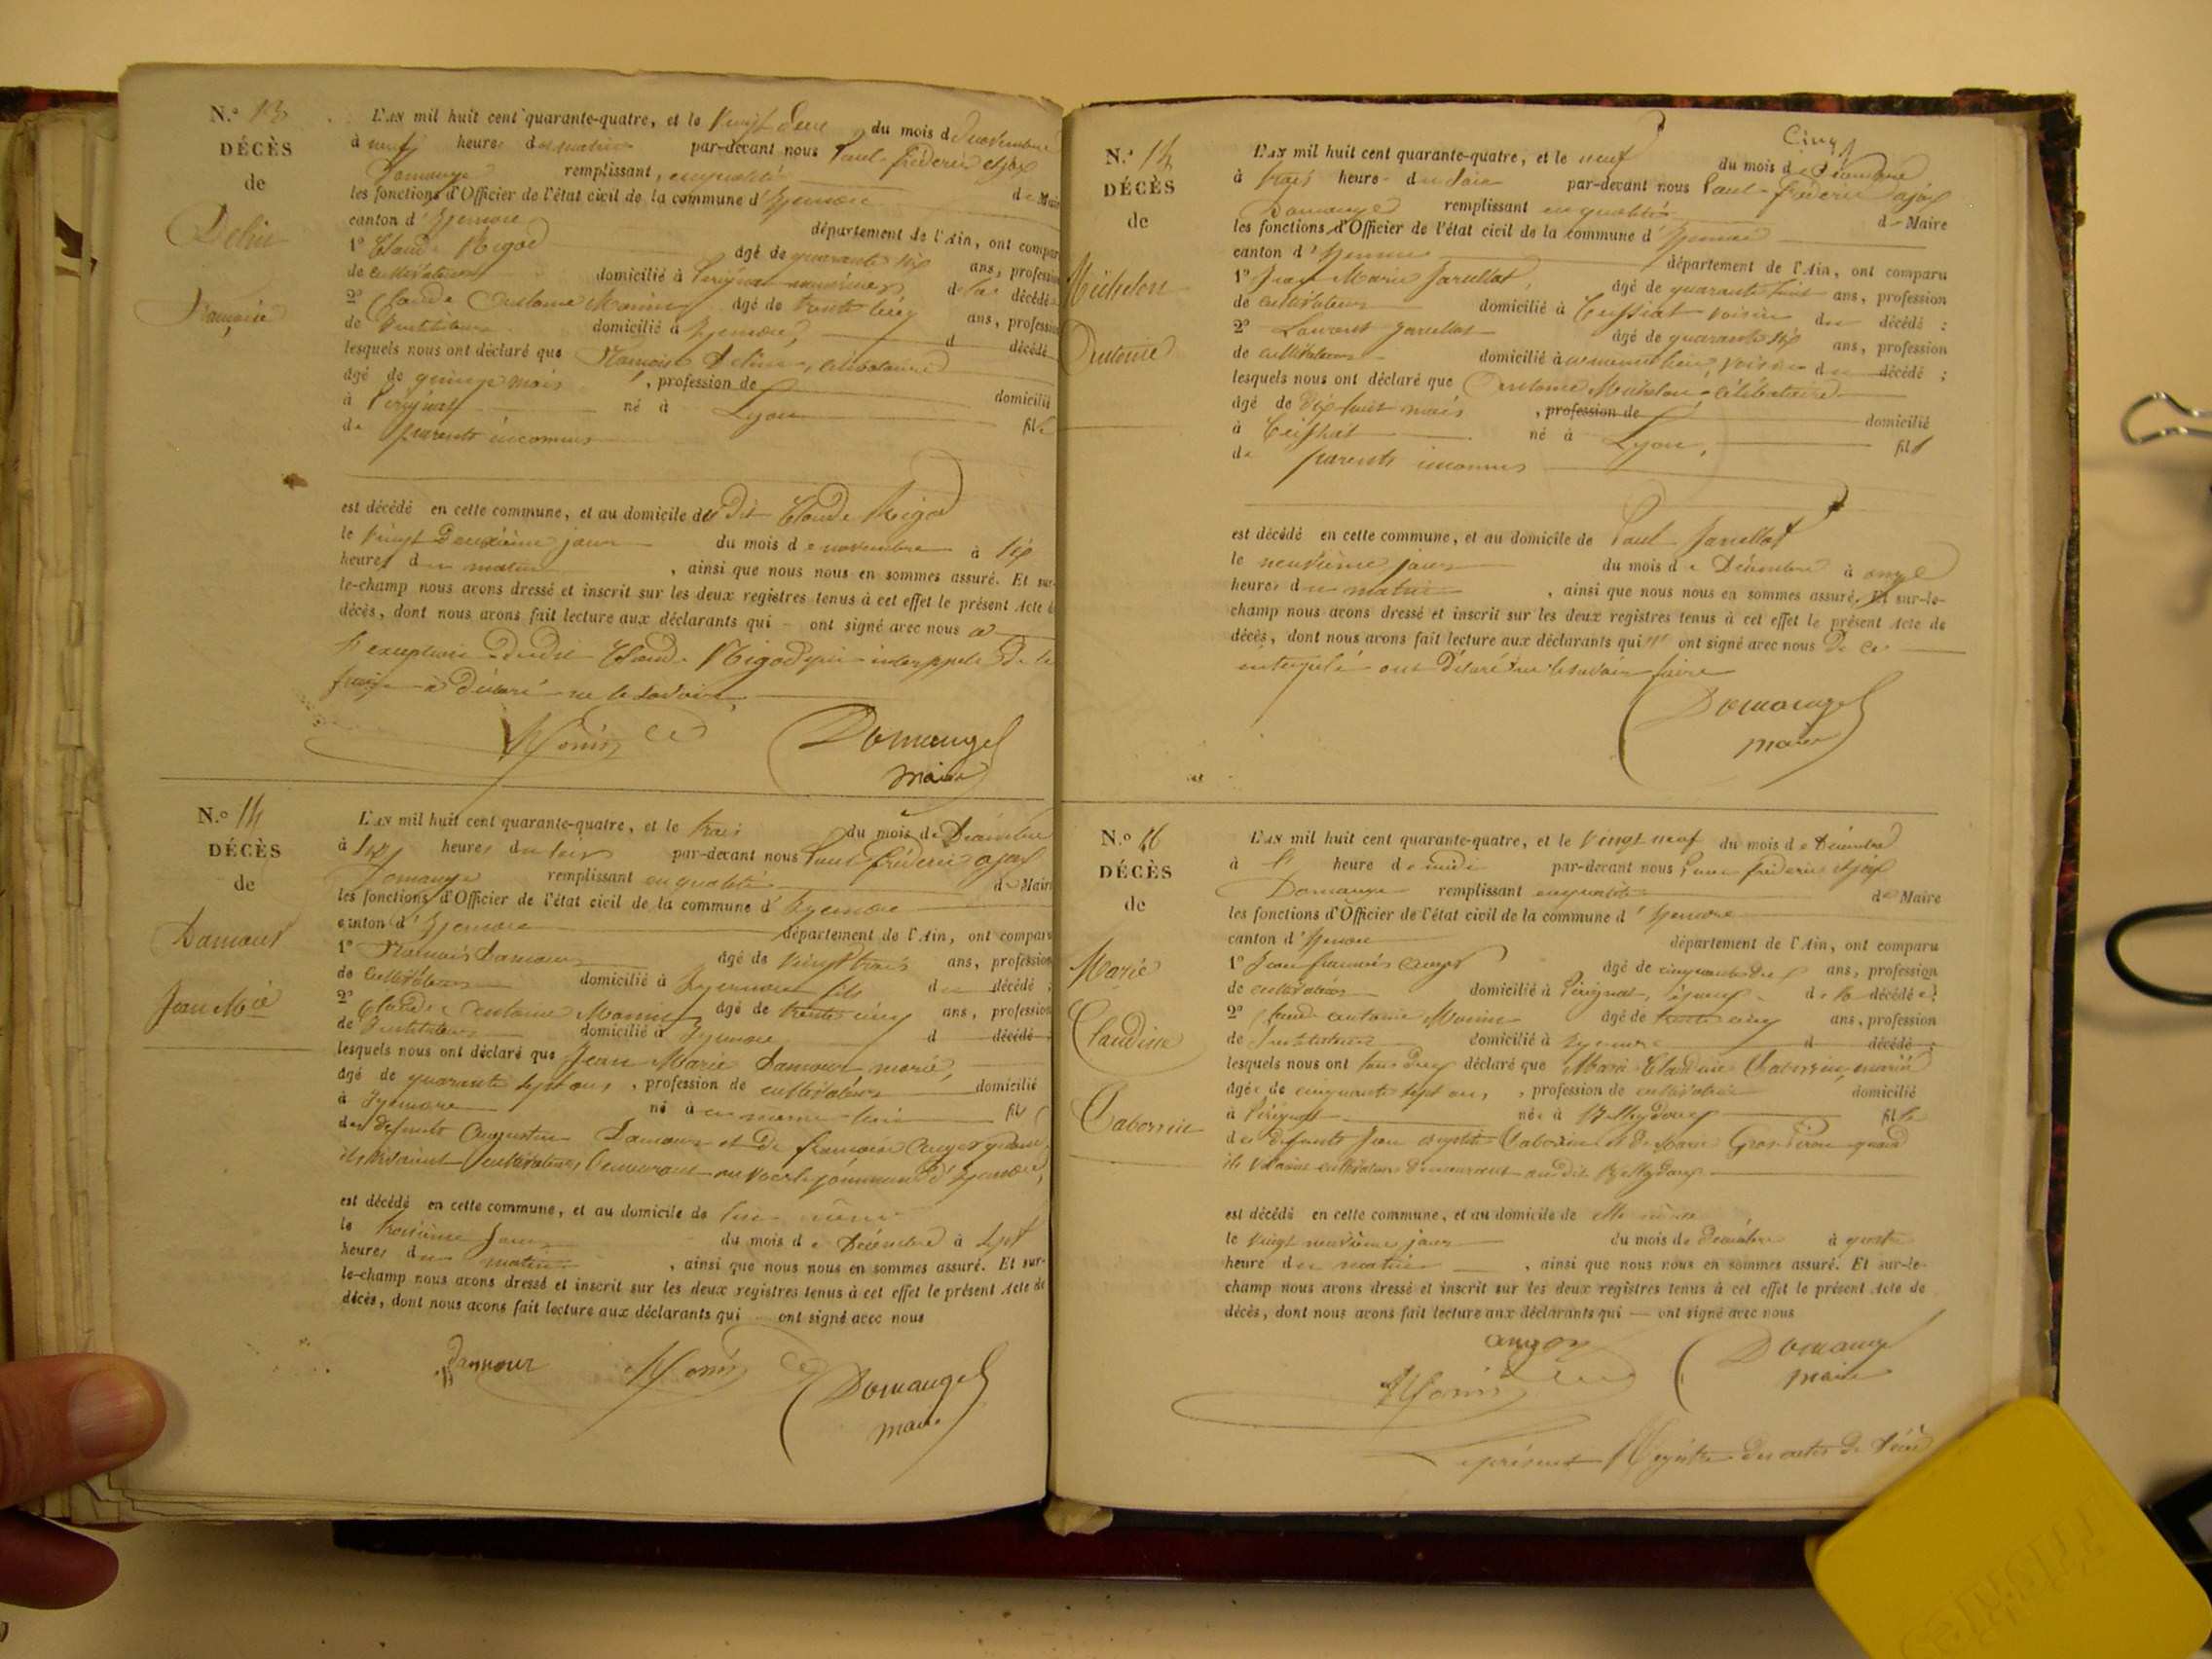 N.º 13
DÉCÈS
de
Delin
L'AN mil huit cent quarante-quatre, et le vingt deux du mois de novembre
à neuf heures du matin par-devant nous Paul frédéric ajax
Domange remplissant, en qualité de Maire
les fonctions d'Officier de l'état civil de la commune d'Izernore
canton d'Izernore département de l'Ain, ont comparu
1º Claude Rigod âgé de quarante six ans, profession
de cultivateur domicilié à Pérignat de la décédée
2º Claude Antoine Monin âgé de trente cinq ans, profession
de Instituteur domicilié à Izernore, d décédé
lesquels nous ont déclaré que Delin, célibataire
âgé de quinze mois, profession de domicilié
à Pérignat né à Lyon fille
de parents inconnus
est décédé en cette commune, et au domicile du dit Claude Rigod
le vingt deuxième jour du mois de novembre à six
heures du matin, ainsi que nous nous en sommes assuré. Et sur-
le-champ nous avons dressé et inscrit sur les deux registres tenus à cet effet le présent Acte de
décès, dont nous avons fait lecture aux déclarants qui ont signé avec nous a
l'exception dudit Claude Rigod qui interppelé de le
faire a déclaré ne le savoir.
Monin Domange
maire
N.º 14
DÉCÈS
de
Damour
Jean Mie
L'AN mil huit cent quarante-quatre, et le trois du mois de Décembre
à six heures du soir par-devant nous Paul frédéric ajax
Domange remplissant en qualité de Maire
les fonctions d'Officier de l'état civil de la commune d'Izernore
canton d'Izernore département de l'Ain, ont comparu
1º François Damour âgé de vingt trois ans, profession
de cultivateur domicilié à Izernore fils du décédé;
2º Claude Antoine Monin âgé de trente cinq ans, profession
de Instituteur domicilié à Izernore d décédé
lesquels nous ont déclaré que Jean Marie Damour, marié,
âgé de quarante sept ans, profession de cultivateur domicilié
à Izernore né à au même lieu fils
des défunts Augustin Damour et de françoise Auger quand
ils vivaient cultivateurs demeurant au commune d'Izernore,
est décédé en cette commune, et au domicile de lui même
le troisième jour du mois de Décembre à sept
heures du matin, ainsi que nous nous en sommes assuré. Et sur-
le-champ nous avons dressé et inscrit sur les deux registres tenus à cet effet le présent Acte de
décès, dont nous avons fait lecture aux déclarants qui ont signé avec nous
Damour Monin Domange
maire
Cinq
N.º 15
DÉCÈS
de
Michelon
Antoine
L'AN mil huit cent quarante-quatre, et le neuf du mois de Décembre
à trois heure du soir par-devant nous Paul frédéric ajax
Domange remplissant en qualité de Maire
les fonctions d'Officier de l'état civil de la commune d'Izernore
canton d'Izernore département de l'Ain, ont comparu
1º Jean Marie Jarcellat, âgé de quarante huit ans, profession
de cultivateur domicilié à Ceissiat voisin du décédé;
2º Laurent Jarcellat âgé de quarante six ans, profession
de cultivateur domicilié à au même lieu, voisin du décédé;
lesquels nous ont déclaré que Antoine Michelon célibataire
âgé de dix huit mois, profession de domicilié
à Ceissiat né à Lyon, fils
de parents inconnus
est décédé en cette commune, et au domicile de Paul Jarcellat
le neuvième jour du mois de Décembre à onze
heures du matin, ainsi que nous nous en sommes assuré. Et sur-le-
champ nous avons dressé et inscrit sur les deux registres tenus à cet effet le présent Acte de
décès, dont nous avons fait lecture aux déclarants qui n' ont signé avec nous de ce
interpelé ont déclaré ne le savoir faire
Domange
maire
N.º 16
DÉCÈS
de
Marie
Claudine
L'AN mil huit cent quarante-quatre, et le vingt neuf du mois de Décembre
à heure de midi par-devant nous Paul frédéric ajax
Domange remplissant en qualité de Maire
les fonctions d'Officier de l'état civil de la commune d'Izernore
canton d'Izernore département de l'Ain, ont comparu
1º Jean françois Auger âgé de cinquante ans, profession
de cultivateur domicilié à Pérignat, de la décédée;
2º Claude Antoine Monin âgé de trente cinq ans, profession
de Instituteur domicilié à Izernore d décédé;
lesquels nous ont tous deux déclaré que Marie Claudine mariée
âgée de cinquante sept ans, profession de cultivatrice domicilié
à Pérignat née à Bellydoux fille
des défunts Jean et de Marie quand
ils vivaient cultivateurs demeurant audit Bellydoux
est décédé en cette commune, et au domicile de elle même
le vingt neuvième jour du mois de Décembre à quatre
heure du matin, ainsi que nous nous en sommes assuré. Et sur-le-
champ nous avons dressé et inscrit sur les deux registres tenus à cet effet le présent Acte de
décès, dont nous avons fait lecture aux déclarants qui ont signé avec nous
auger
Monin Domange
maire
Le présent Régistre des actes de décès